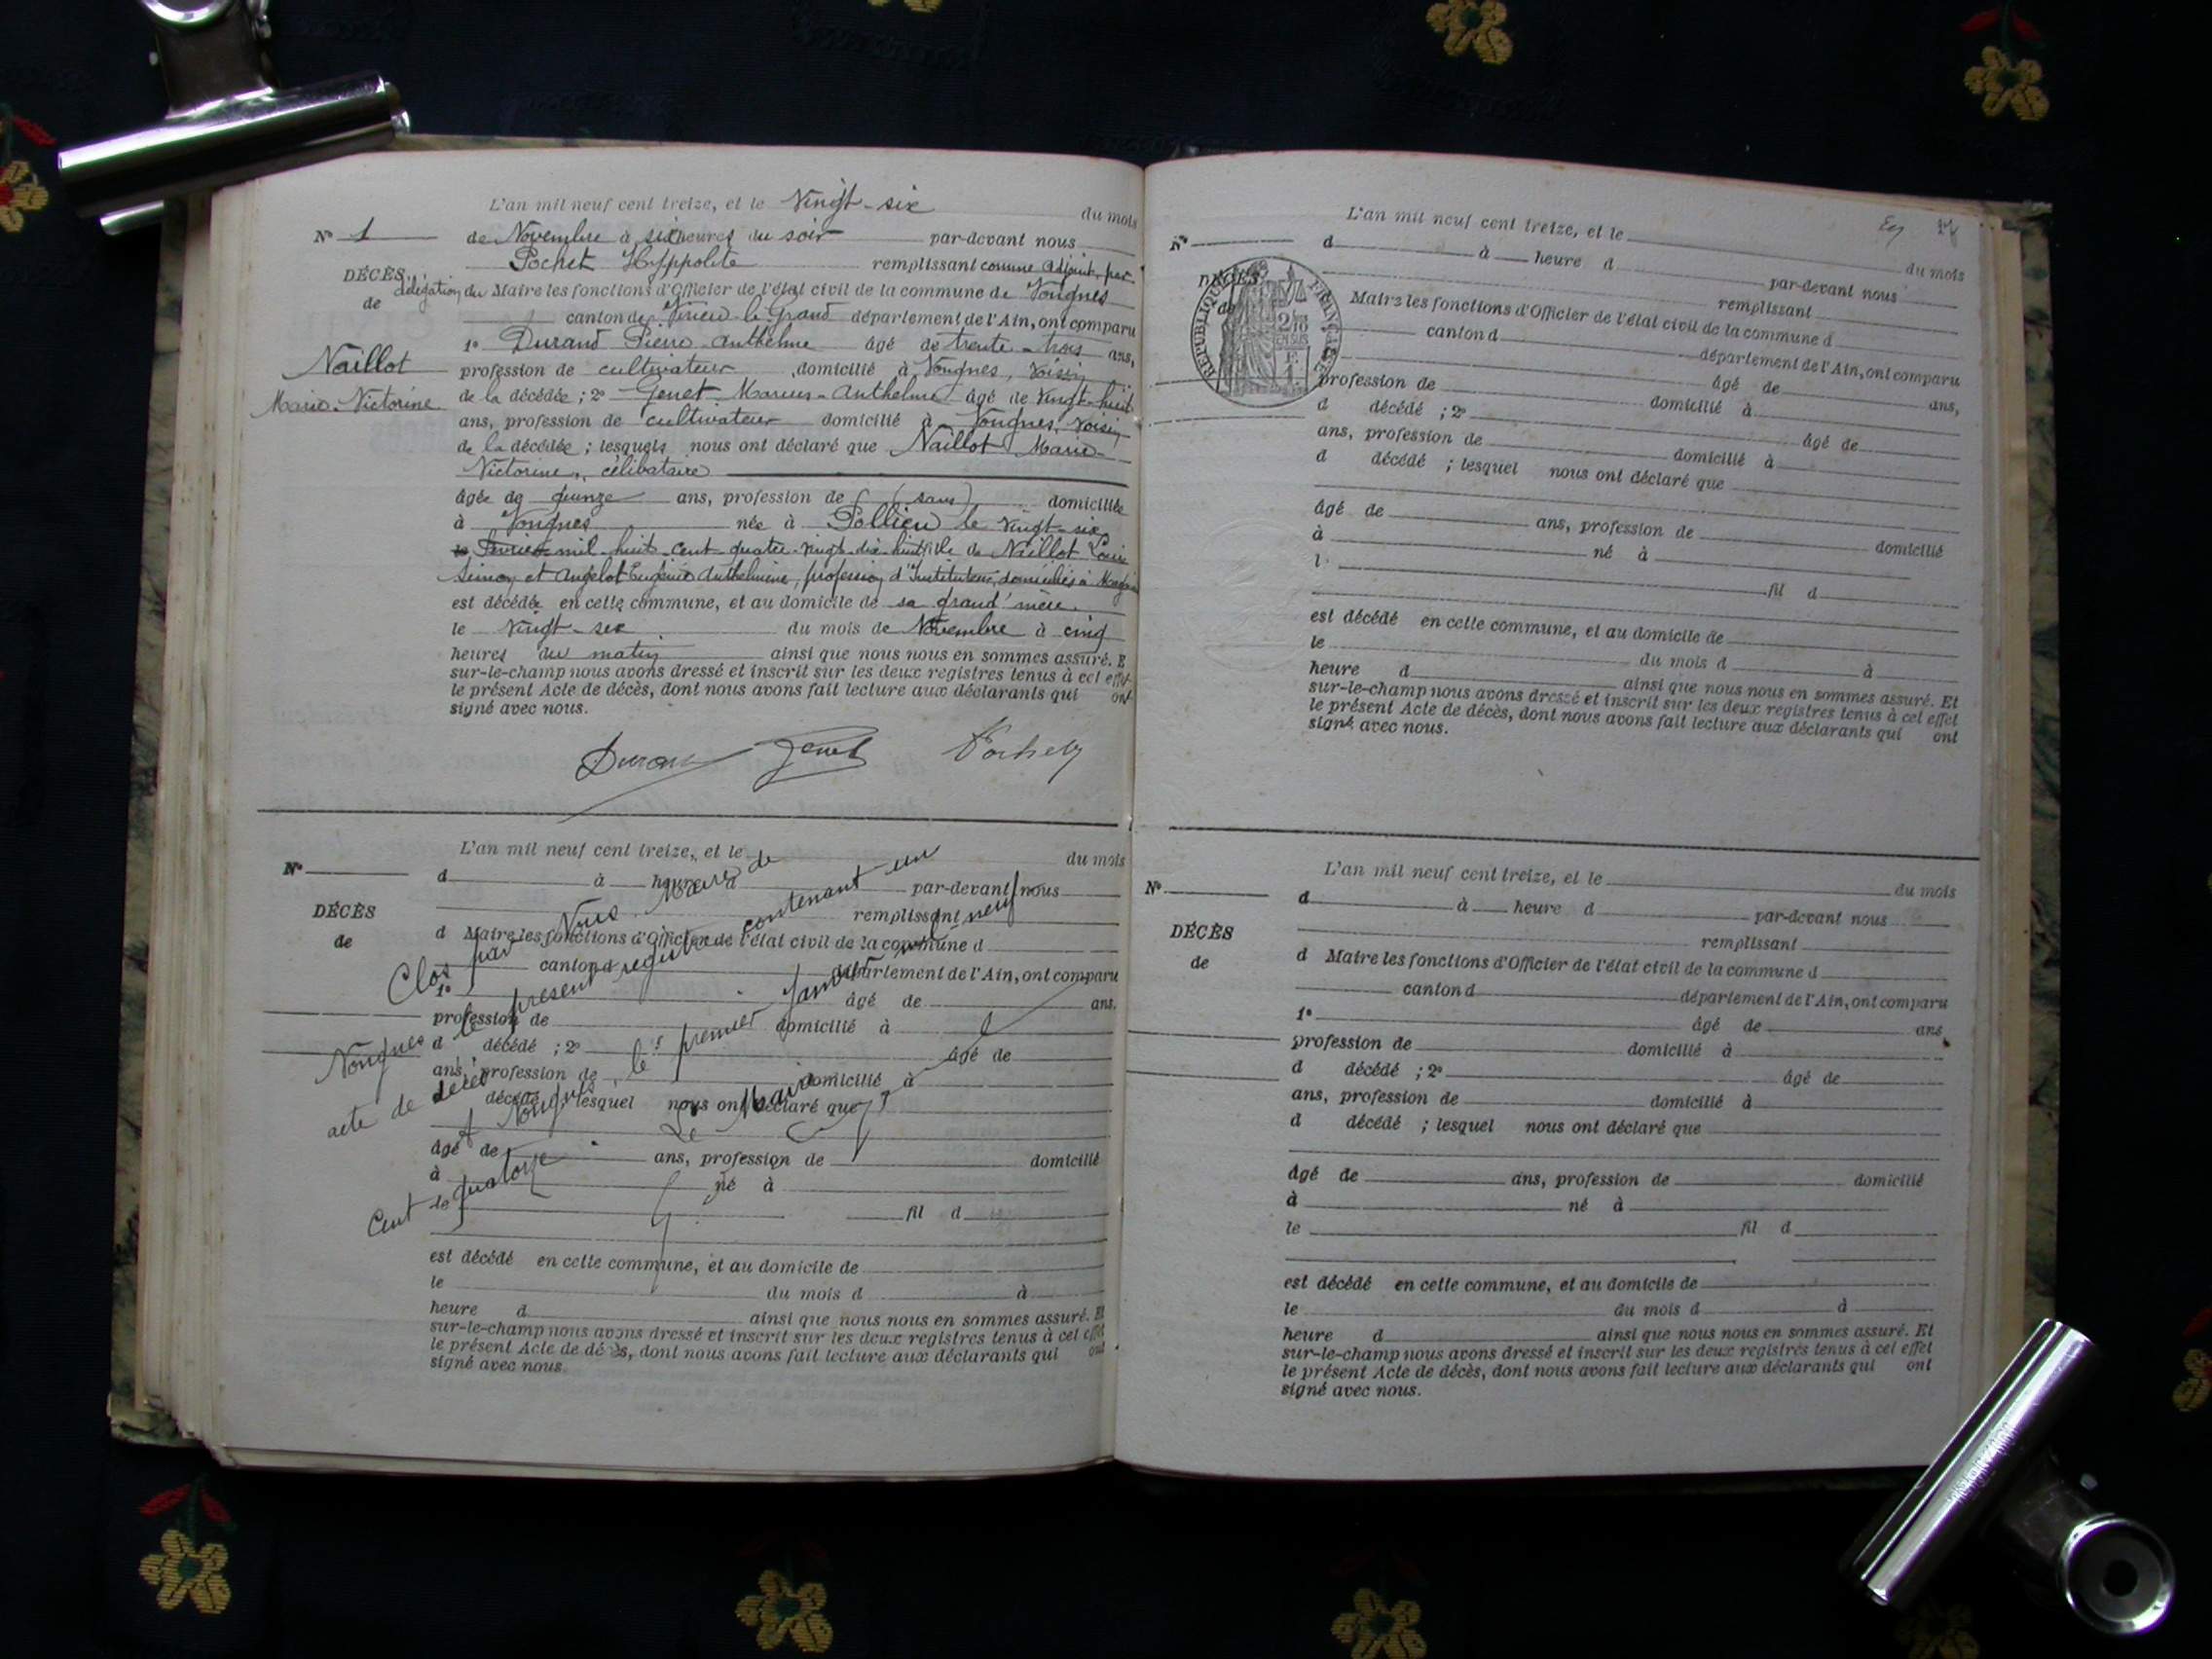 L'an mil neuf cent treize, et le Vingt-six du mois
N° 1 de Novembre à six heures du soir par-devant nous
Pochet Hyppolite remplissant comme adjoint, par
DÉCÈS délégation du Maire les fonctions d'Officier de l'état civil de la commune de Vongnes
de canton de Virieu le Grand département de l'Ain, ont comparu
1° Durand Pierre Anthelme âgé de trente-trois ans,
Naillot profession de cultivateur domicilié à Vongnes, voisin
Marie-Victorine de la décédée ; 2° Genet Marius-Anthelme âgé de vingt-huit
ans, profession de cultivateur domicilié à Vongnes, voisin
de la décédée ; lesquels nous ont déclaré que Naillot Marie-
Victorine, célibataire
âgée de quinze ans, profession de (sans) domiciliée
à Vongnes née à Pollieu le vingt-six
le février mil huit cent quatre-vingt-dix huit fille de Naillot Louis
Simon et Angelot Eugénie Anthelmine, profession d'Instituteur, domiciliés à
est décédée en cette commune, et au domicile de sa grand'mère.
le vingt-six du mois de Novembre à cinq
heures du matin ainsi que nous nous en sommes assuré. E
sur-le-champ nous avons dressé et inscrit sur les deux registres tenus à cet effet
le présent Acte de décès, dont nous avons fait lecture aux déclarants qui ont
signé avec nous.
Durand Genet Pochet
L'an mil neuf cent treize, et le du mois
N° d à heure d par-devant nous
remplissant
DÉCÈS d Maire les fonctions d'Officier de l'état civil de la commune d
de canton d département de l'Ain, ont comparu
1° âgé de ans.
profession de domicilié à
d décédé ; 2° âgé de
ans, profession de domicilié à
d décédé ; lesquel nous ont déclaré que
âgé de ans, profession de domicilié
à né à
le fil d
est décédé en cette commune, et au domicile de
le du mois d à
heure d ainsi que nous nous en sommes assuré. Et
sur-le-champ nous avons dressé et inscrit sur les deux registres tenus à cet effet
le présent Acte de décès, dont nous avons fait lecture aux déclarants qui ont
signé avec nous.
Clos par Nous Maire de
Vongnes le présent registre contenant un
acte de décès le premier Janvier mil neuf
Cent quatorze
Vongnes
Le Maire
L'an mil neuf cent treize, et le
N° d à heure d du mois
par-devant nous
DÉCÈS remplissant
de Maire les fonctions d'Officier de l'état civil de la commune d
canton d département de l'Ain, ont comparu
RÉPUBLIQUE FRANÇAISE
âgé de ans,
profession de domicilié à
d décédé ; 2° âgé de
ans, profession de domicilié à
d décédé ; lesquel nous ont déclaré que
âgé de ans, profession de domicilié
à né à
l
fil d
est décédé en cette commune, et au domicile de
le du mois d à
heure d ainsi que nous nous en sommes assuré. Et
sur-le-champ nous avons dressé et inscrit sur les deux registres tenus à cet effet
le présent Acte de décès, dont nous avons fait lecture aux déclarants qui ont
signé avec nous.
L'an mil neuf cent treize, et le du mois
N° d à heure d par-devant nous
remplissant
DÉCÈS
de d Maire les fonctions d'Officier de l'état civil de la commune d
canton d département de l'Ain, ont comparu
1° âgé de ans
profession de domicilié à
d décédé ; 2° âgé de
ans, profession de domicilié à
d décédé ; lesquel nous ont déclaré que
âgé de ans, profession de domicilié
à né à
le fil d
est décédé en cette commune, et au domicile de
le du mois d à
heure d ainsi que nous nous en sommes assuré. Et
sur-le-champ nous avons dressé et inscrit sur les deux registres tenus à cet effet
le présent Acte de décès, dont nous avons fait lecture aux déclarants qui ont
signé avec nous.